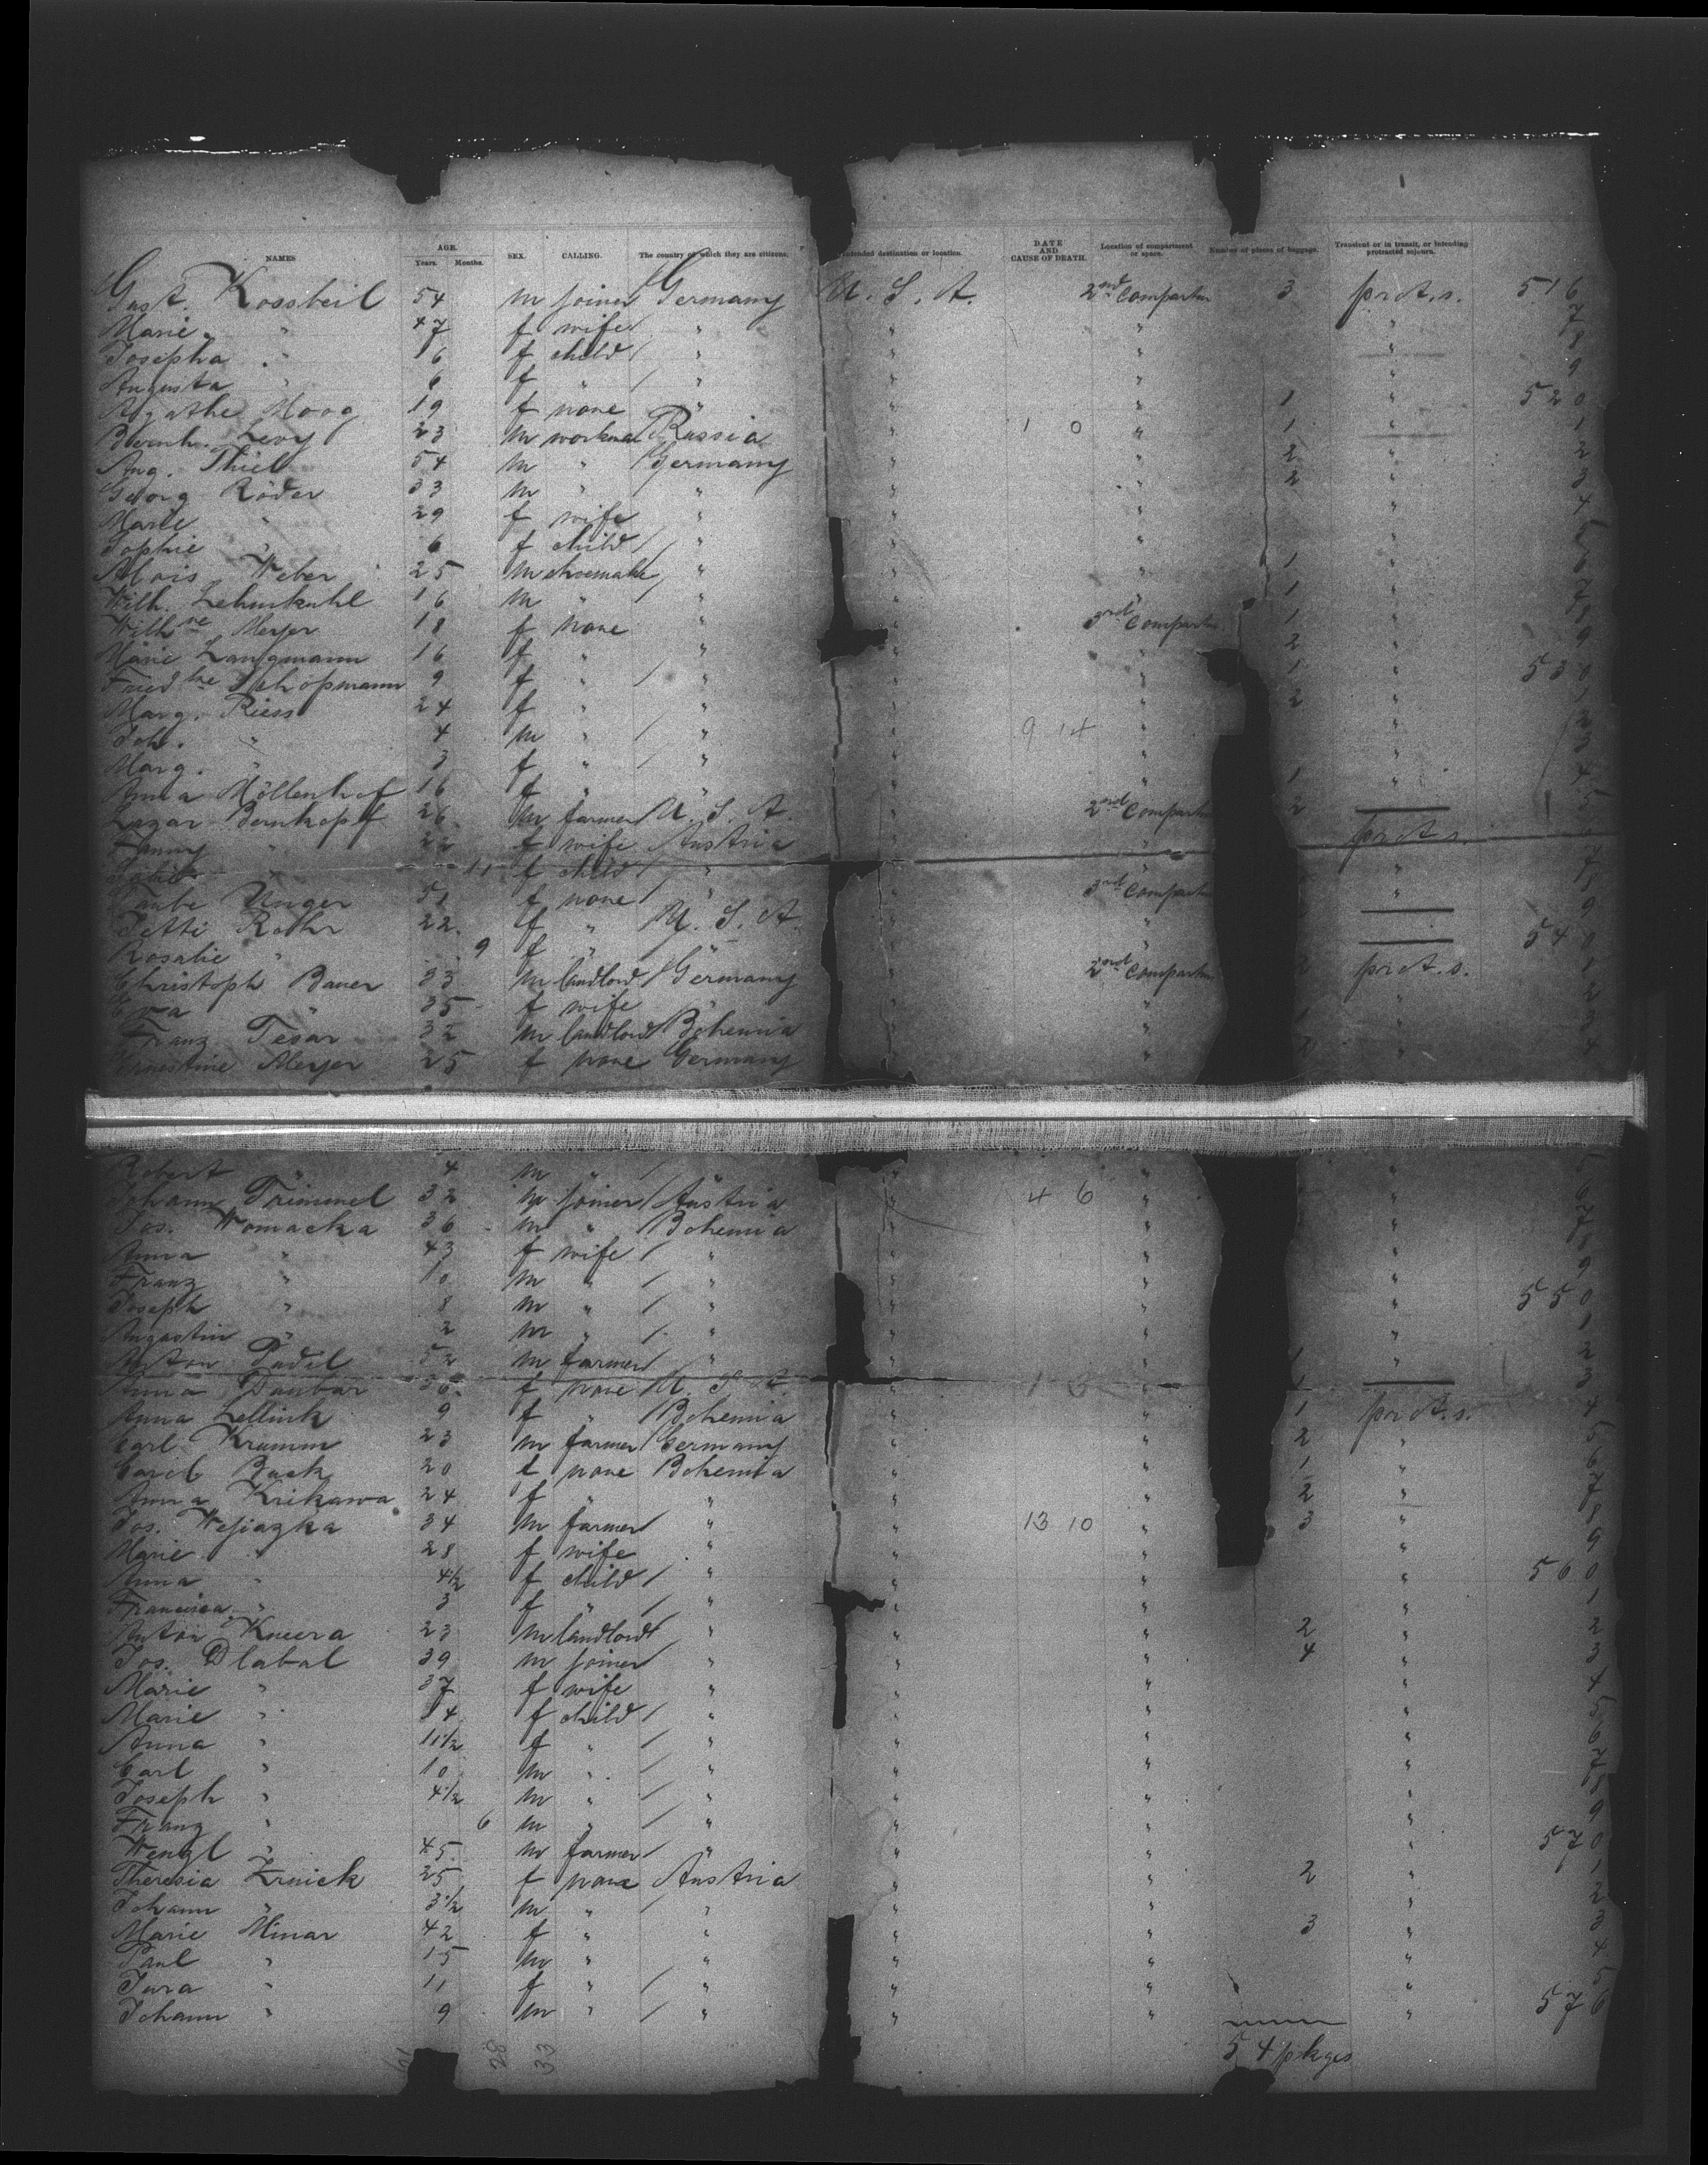 NAMES AGE. Years. Months. SEX. CALLING. The country of which they are citizens. Intended destination or location. DATE AND CAUSE OF DEATH. Location of compartment or space. Number of pieces of baggage. Transient or in transit, or intending protracted sojourn.
Gust. Kossbeil 54 m joiner Germany U. S. A. 2nd Compartm 3 prot. s. 516
Marie " 47 f wife " " " " 7
Josepha " 16 f child / " " " " 8
Augusta " 6 f " / " " " " 9
Agathe Moog 19 f none " " " 1 " 520
Bernh. Levy 23 m workman Russia " 1 0 " 1 " 1
Aug. Thiel 54 m " Germany " " 2 " 2
Georg Röder 33 m " " " " 2 " 3
Marie " 29 f wife " " " " 4
Sophie " 6 f child / " " " " 5
Alois Weber 25 m shoemaker " " " 1 " 6
Wilh. Lehmkuhl 16 m " " " " 1 " 7
Wilh ne Meyer 18 f none " " 3rd Compartm 1 " 8
Marie Langmann 16 f " " " " 2 " 9
Fried ke Schopmann 9 f " / " " " 1 " 530
Marg. Riess 24 f " " " " 2 " 1
Joh. " 4 m " / " " 9 14 " " 2
Marg. " 3 f " / " " " " 3
Anna Möllenhof 16 f " " " " 1 " 4
Lazar Bernkopf 26 m farmer U. S. A. " 2nd Compartm 2 5
Fanny " 22 f wife Austria " " prot. s.
" 11 f child / " " " " 7
Taube Unger 51 f none / " " 3rd Compartm " 8
Jetti Rohr 22 f " U. S. A. " " 9
Rosalie " 9 f " / " " " 540
Christoph Bauer 33 m landlord Germany " 2nd Compartm 2 prot. s. 1
Eva " 35 f wife " " " " 2
Franz Tesar 32 m landlord Bohemia " " 1 " 3
Ernestine Meyer 25 f none Germany " " " 4
Robert " 4 m " / " " " "
Johann Trimmel 32 m joiner Austria " 4 6 " " 6
Jos. Womacka 36 m " Bohemia " " " 7
Anna " 43 f wife / " " " " 8
Franz " 10 m " / " " " " 9
Joseph " 8 m " / " " " " 550
Augustin " 2 m " / " " " " 1
Anton Padel 52 m farmer " " " 1 " 2
Anna Daubar 36 f none U. S. A. " 1 3 " 1 3
Anna Lellink 9 f " / Bohemia " " 1 prot. s. 4
Carl Krumm 23 m farmer Germany " " 2 " 5
Carol. Back 20 f none Bohemia " " 1 " 6
Anna Krikawa 24 f " " " " 2 " 7
Jos. 34 m farmer " " 13 10 " 3 " 8
Marie " 28 f wife " " " " 9
Anna " 4 1/2 f child / " " " " 560
Francisca " 3 f " / " " " " 1
Anton Kucera 23 m landlord " " " 2 " 2
Jos. Dlabal 39 m joiner " " " 4 " 3
Marie " 37 f wife " " " " 4
Marie " 14 f child / " " " " 5
Anna " 11 1/2 f " / " " " " 6
Carl " 10 m " / " " " " 7
Joseph " 4 1/2 m " / " " " " 8
Franz " 6 m " / " " " " 9
Wenzl " 45 m farmer " " " " 570
Theresia 25 f none Austria " " 2 " 1
Johann " 3 1/2 m " / " " " " 2
Marie Minar 42 f " " " " 3 " 3
Paul " 15 m " " " " " 4
Jura " 11 f " / " " " " 5
Johann " 9 m " / " " " " 576
61 28 33
54 pkges